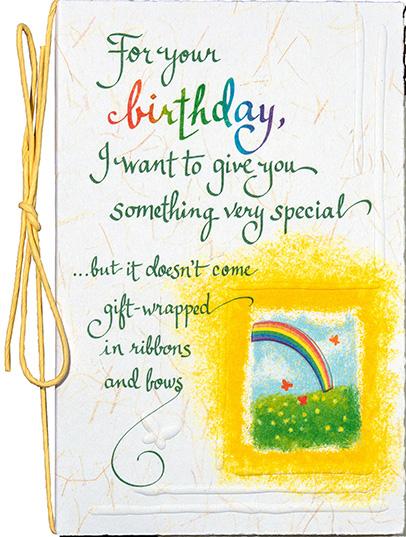 For your
birthday,
I want to give you
something very special
...but it doesn't come
gift-wrapped
in ribbons
and bows